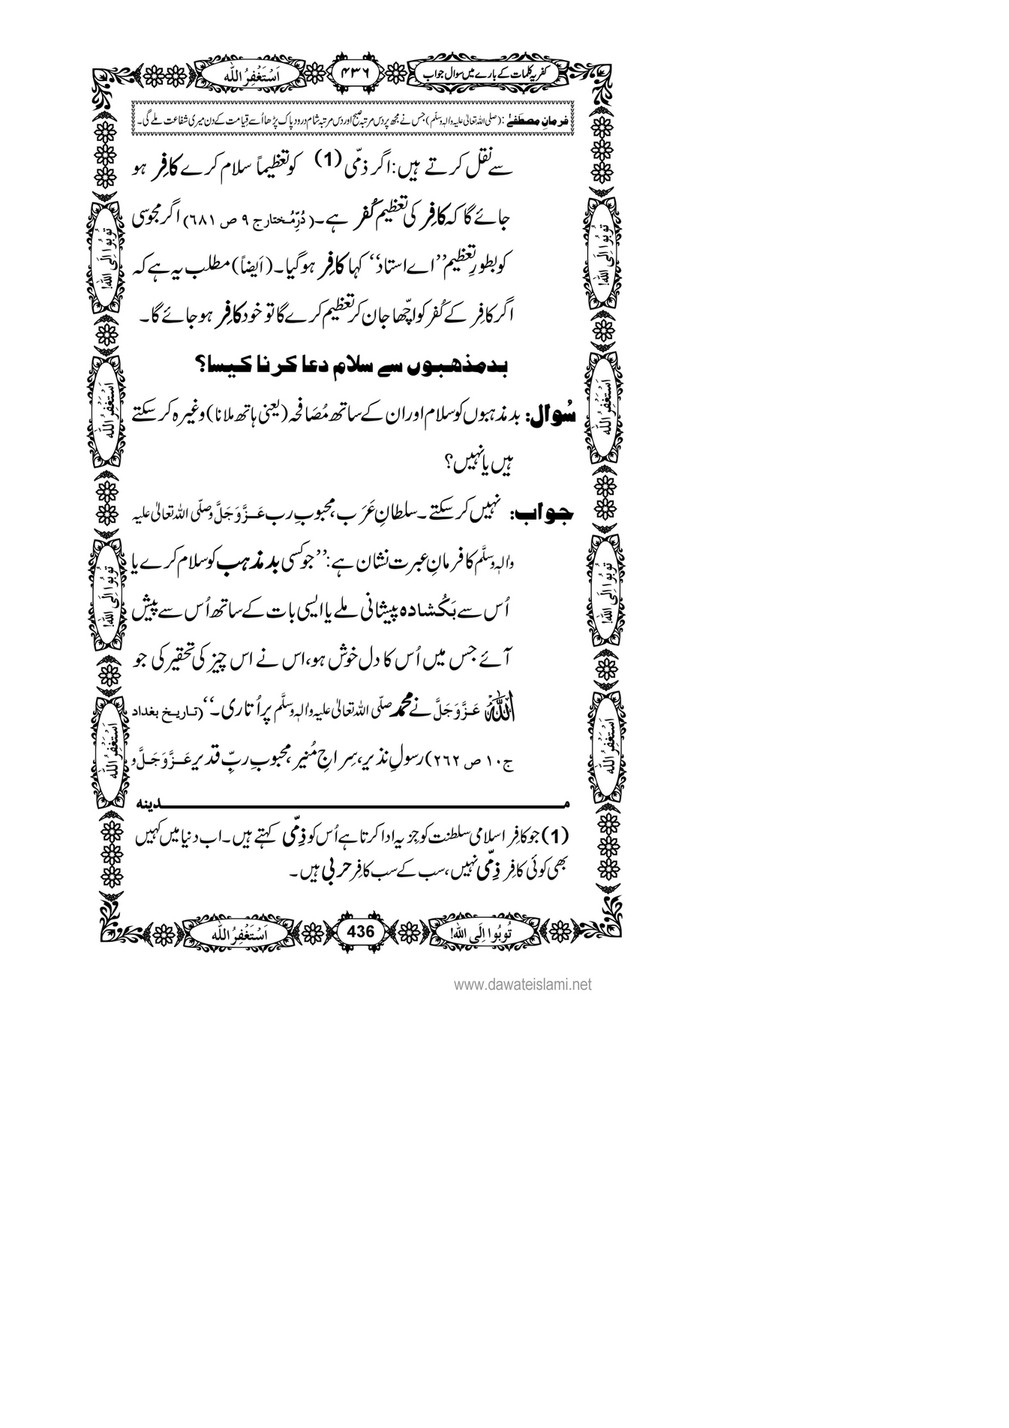 کفریہ کلمات کے بارے میں سوال جواب ۴۳۶ اَسْتَغْفِرُ اللّٰہ
فرمانِ مصطفےٰ : (صلی اللہ تعالیٰ علیہ واٰلہٖ وسلّم) جس نے مجھ پر دس مرتبہ صبح اور دس مرتبہ شام درود پاک پڑھا اُسے قیامت کے دن میری شفاعت ملے گی۔
سے نقل کرتے ہیں: اگر ذمّی (1) کو تعظیماً سلام کرے کافِر ہو
جائے گا کہ کافِر کی تعظیم کُفر ہے۔ (دُرِّمُختار ج ۹ ص ۶۸۱) اگر مجوسی
کو بطورِ تعظیم ’’اے استاد‘‘ کہا کافِر ہو گیا۔ (اَیضاً) مطلب یہ ہے کہ
اگر کافِر کے کُفر کو اچّھا جان کر تعظیم کرے گا تو خود کافِر ہو جائے گا۔
بدمذھبوں سے سلام دعا کرنا کیسا؟
سُوال: بد مذہبوں کو سلام اور ان کے ساتھ مُصَافَحہ (یعنی ہاتھ ملانا) وغیرہ کرسکتے
ہیں یا نہیں؟
جواب: نہیں کرسکتے۔ سلطانِ عَرَب، محبوبِ رب عَزَّوَجَلَّ وصلّی اللہ تعالیٰ علیہ
واٰلہٖ وسلَّم کا فرمانِ عبرت نشان ہے: ’’جو کسی بد مذہب کو سلام کرے یا
اُس سے بَکُشادہ پیشانی ملے یا ایسی بات کے ساتھ اُس سے پیش
آئے جس میں اُس کا دل خوش ہو، اس نے اس چیز کی تحقیر کی جو
اللّٰہ عَزَّوَجَلَّ نے محمد صلّی اللہ تعالیٰ علیہ واٰلہٖ وسلَّم پر اُتاری۔‘‘ (تاریخ بغداد
ج۱۰ ص ۲۶۲) رسولِ نذیر، سِراجِ مُنیر، محبوبِ ربِّ قدیر عَزَّوَجَلَّ و
مـــدینہ
(1) جو کافِر اسلامی سلطنت کو جِزیہ ادا کرتا ہے اُس کو ذِمّی کہتے ہیں۔ اب دنیا میں کہیں
بھی کوئی کافِر ذِمّی نہیں، سب کے سب کافِر حربی ہیں۔
تُوبُوا اِلَی اللّٰہ! 436 اَسْتَغْفِرُ اللّٰہ
تُوبُوا اِلَی اللّٰہ!
اَسْتَغْفِرُ اللّٰہ
تُوبُوا اِلَی اللّٰہ!
اَسْتَغْفِرُ اللّٰہ
تُوبُوا اِلَی اللّٰہ!
اَسْتَغْفِرُ اللّٰہ
تُوبُوا اِلَی اللّٰہ!
اَسْتَغْفِرُ اللّٰہ
www.dawateislami.net